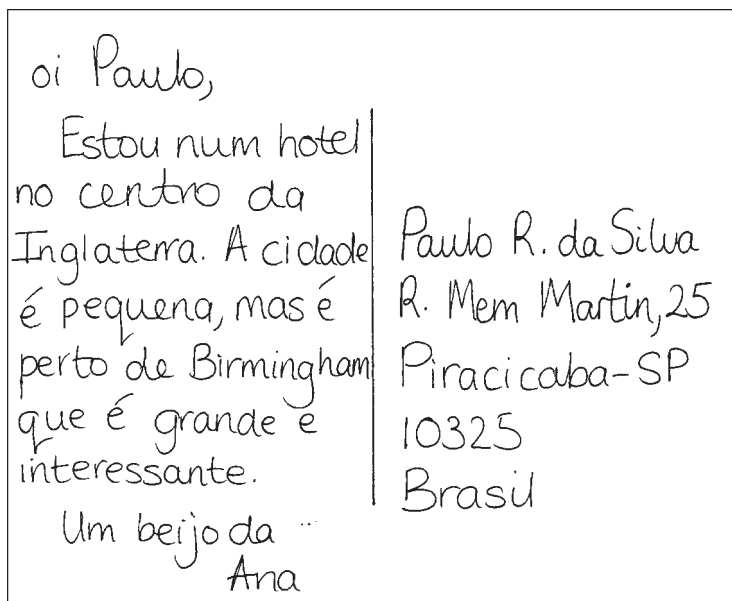 oi Paulo,
Estou num hotel
no centro da
Inglaterra. A cidade
é pequena, mas é
perto de Birmingham
que é grande e
interessante.
Um beijo da
Ana
Paulo R. da Silva
R. Mem Martin, 25
Piracicaba-SP
10325
Brasil